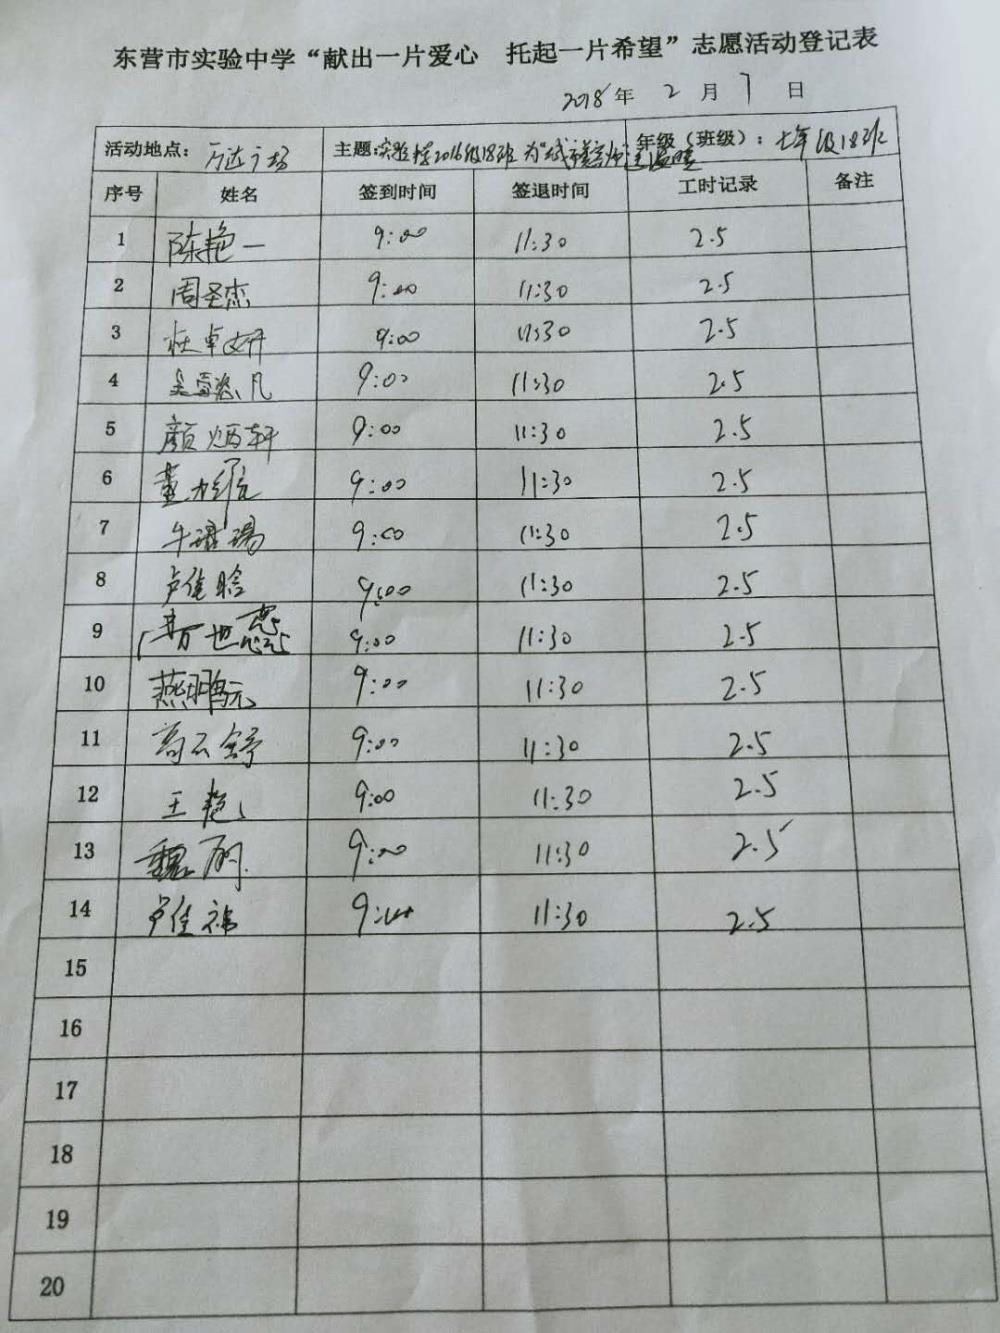 东营市实验中学“献出一片爱心 托起一片希望”志愿活动登记表
2018年 2 月 7 日
活动地点：万达广场 主题：实验中学2016级18班 为“城市 年级（班级）：七年级18班
序号 姓名 签到时间 签退时间 工时记录 备注
1 陈艳一 9:00 11:30 2.5
2 周圣杰 9:00 11:30 2.5
3 任卓妍 9:00 11:30 2.5
4 吴 凡 9:00 11:30 2.5
5 颜炳轩 9:00 11:30 2.5
6 董 9:00 11:30 2.5
7 牛 9:00 11:30 2.5
8 卢佳晗 9:00 11:30 2.5
9 9:00 11:30 2.5
10 燕鹏元 9:00 11:30 2.5
11 高云舒 9:00 11:30 2.5
12 王艳 9:00 11:30 2.5
13 魏丽 9:00 11:30 2.5
14 卢佳 9:00 11:30 2.5
15
16
17
18
19
20